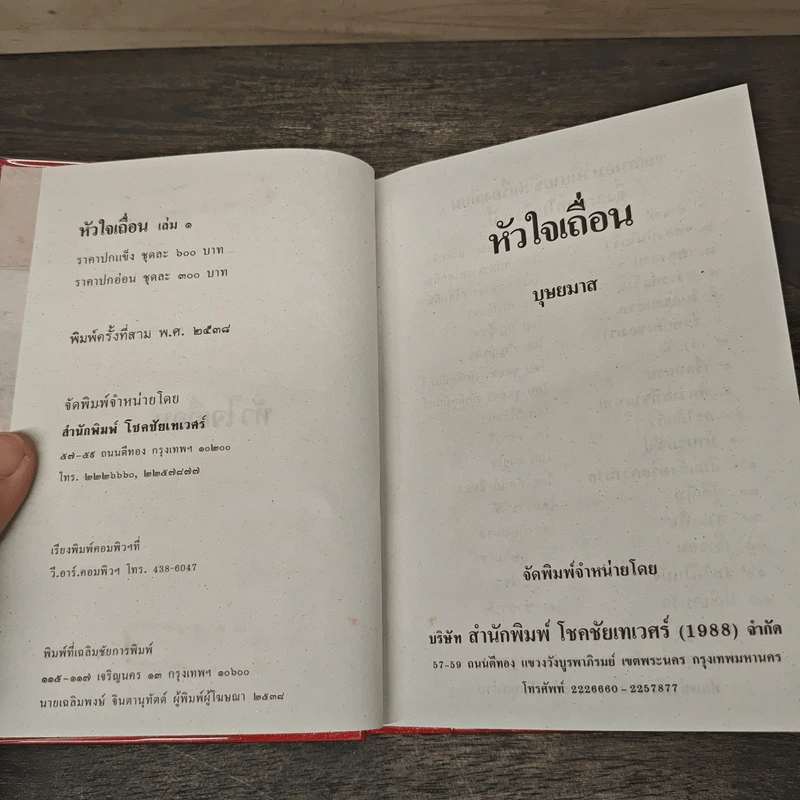 หัวใจเถื่อน เล่ม ๑
ราคาปกแข็ง ชุดละ ๖๐๐ บาท
ราคาปกอ่อน ชุดละ ๓๐๐ บาท
พิมพ์ครั้งที่สาม พ.ศ. ๒๕๓๘
จัดพิมพ์จำหน่ายโดย
สำนักพิมพ์ โชคชัยเทเวศร์
๕๗-๕๙ ถนนตีทอง กรุงเทพฯ ๑๐๒๐๐
โทร. ๒๒๒๖๖๖๐, ๒๒๕๗๘๗๗
เรียงพิมพ์คอมพิวฯที่
วี.อาร์.คอมพิวฯ โทร. 438-6047
พิมพ์ที่เฉลิมชัยการพิมพ์
๑๑๕-๑๑๗ เจริญนคร ๑๓ กรุงเทพฯ ๑๐๖๐๐
นายเฉลิมพงษ์ จินดานุทัตต์ ผู้พิมพ์ผู้โฆษณา ๒๕๓๘
หัวใจเถื่อน
บุษยมาส
จัดพิมพ์จำหน่ายโดย
บริษัท สำนักพิมพ์ โชคชัยเทเวศร์ (1988) จำกัด
57-59 ถนนตีทอง แขวงวังบูรพาภิรมย์ เขตพระนคร กรุงเทพมหานคร
โทรศัพท์ 2226660-2257877